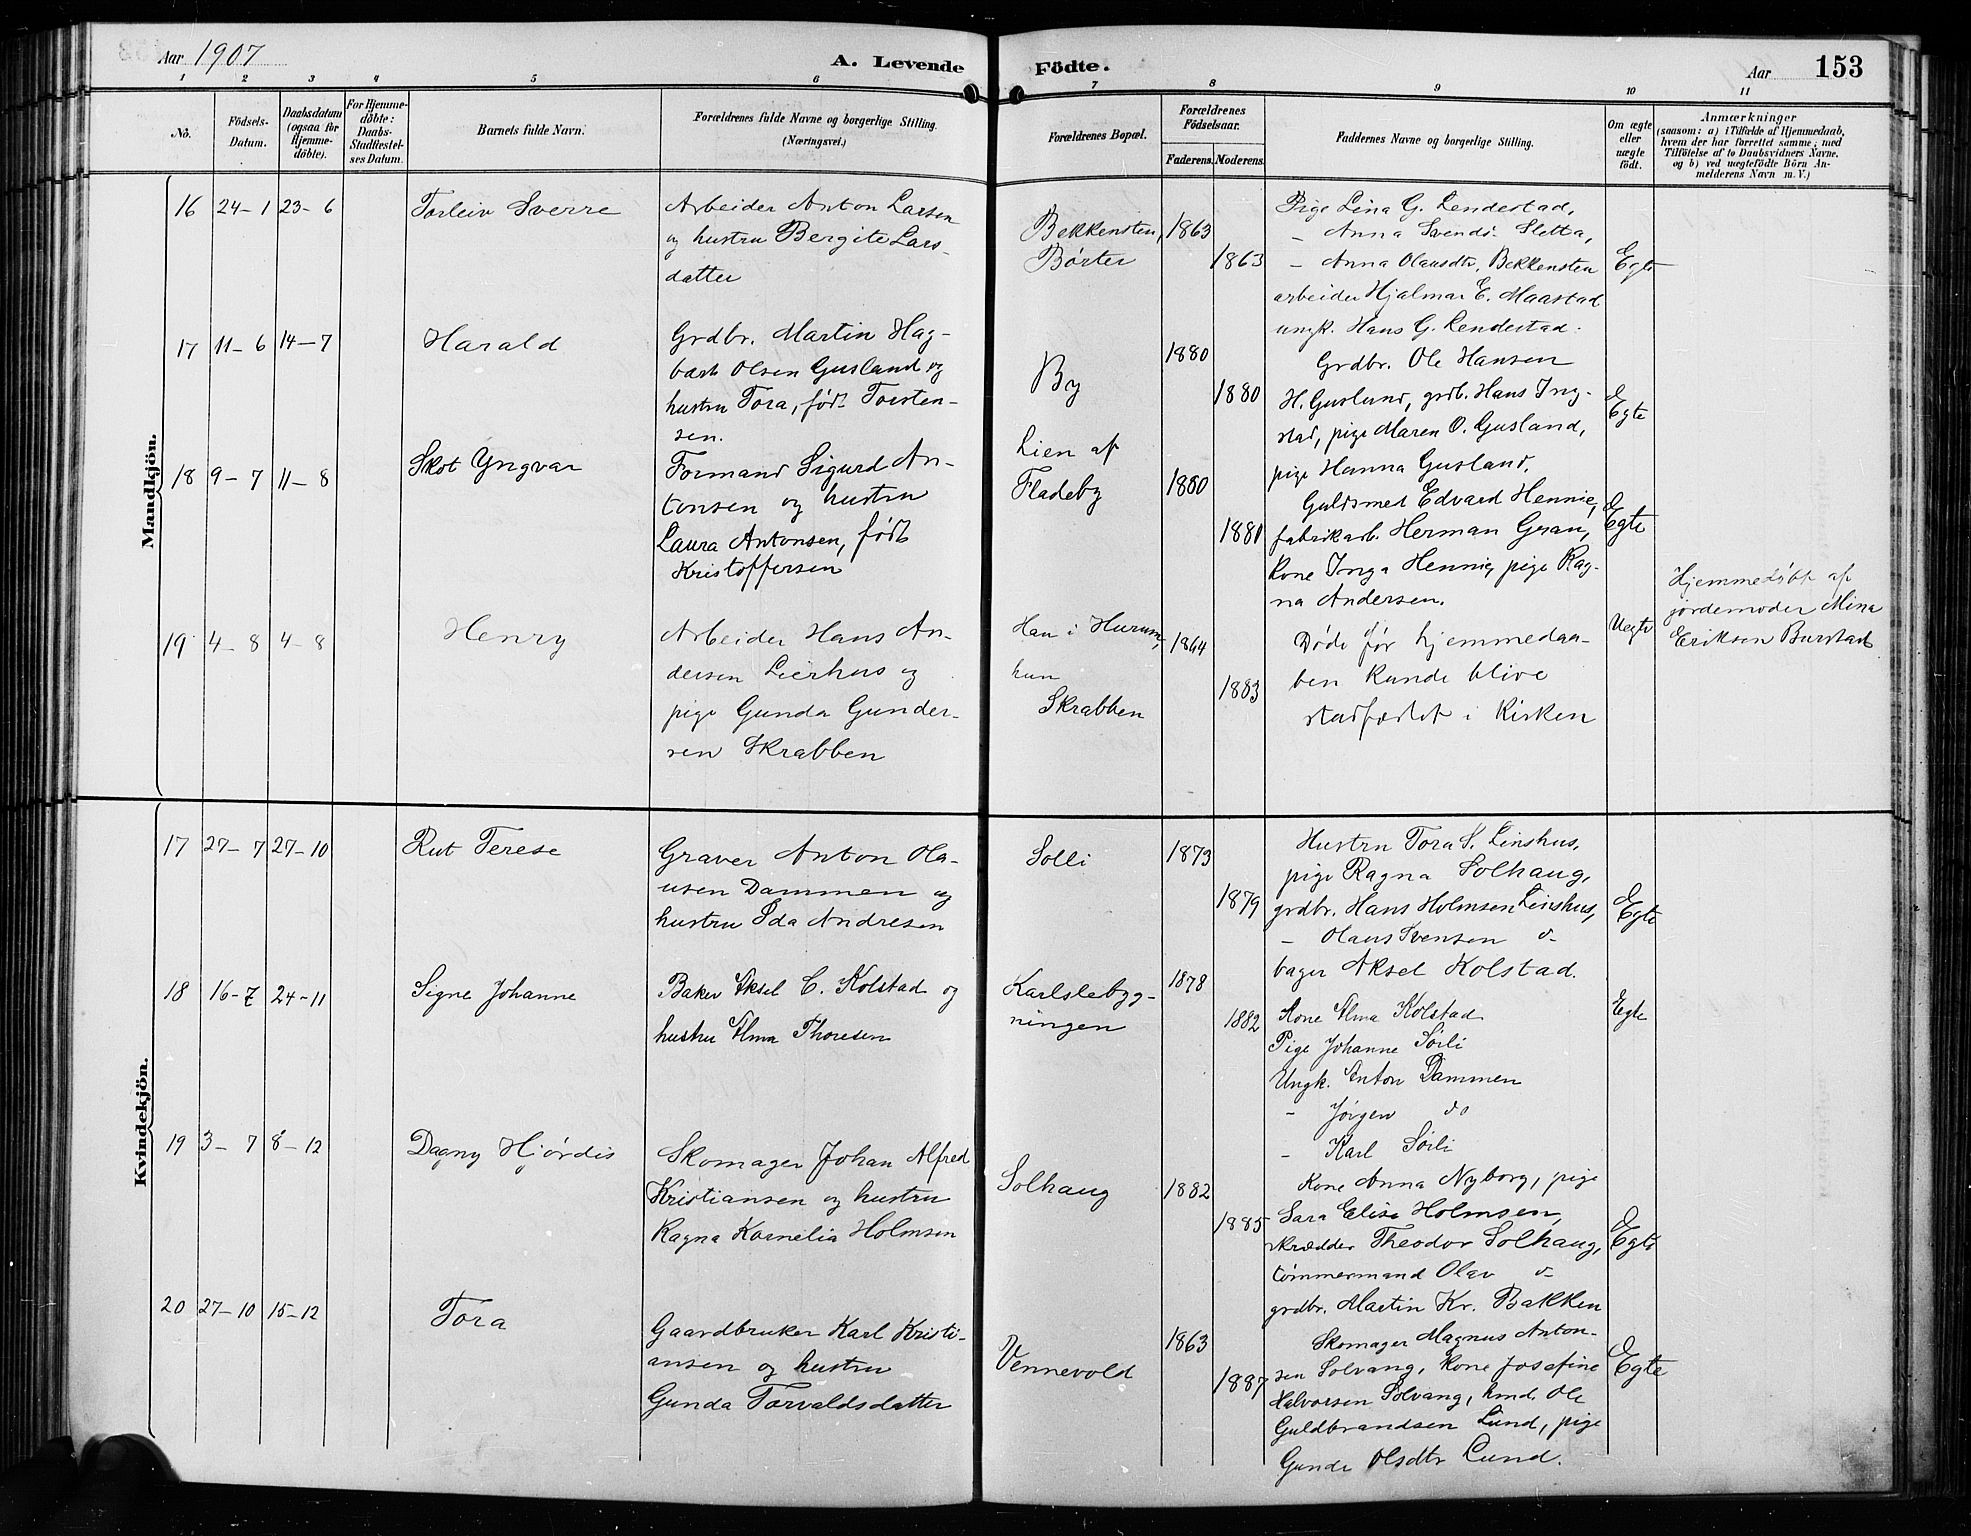 Aar 1907
A. Levende Födte.
Aar 153
1 2 3 4 5 6 7 8 9 10 11
No.
Födsels-
Datum.
Daabsdatum
(ogsaa for
Hjemme-
döbte).
For Hjemme-
döbte:
Daabs-
Stadfæstel-
ses Datum.
Barnets fulde Navn.
Forældrenes fulde Navne og borgerlige Stilling.
(Næringsvei.)
Forældrenes Bopæl.
Forældrenes
Födselsaar.
Faderens. Moderens.
Faddernes Navne og borgerlige Stilling.
Om ægte
eller
uægte
födt.
Anmærkninger
(saasom: a) i Tilfælde af Hjemmedaab,
hvem der har forrettet samme, med
Tilföielse af to Daabsvidners Navne,
og b) ved uægtefödte Börn An-
melderens Navn m. V.)
Mandkjön.
16 24-1 23-6
Torleiv Sverre
Arbeider Anton Larsen
og hustru Bergite Lars-
datter
Bekkensten,
Børter
1863
1863
Pige Lina G. Lendestad,
- Anna Svends. Sletta,
- Anna Olausdtr. Bekkensten
arbeider Hjalmar E. Maastad
ungk. Hans G. Lendestad.
Egte
17 11-6 14-7
Harald
Grdbr. Martin Hag-
bart Olsen Gusland og
hustru Tora, født Torsten-
sen.
By
1880
1880
Grdbr. Ole Hansen
H. Guslund, grdb. Hans Ing-
stad, pige Maren O. Gusland,
pige Hanna Gusland.
Egte
18 9-7 11-8
Skot Yngvar
Formand Sigurd An-
tonsen og hustru
Laura Antonsen, født
Kristoffersen
Lien af
Fladeby
1880
1881
Guldsmed Edvard Hennie,
fabrikarb. Herman Gran,
kone Inga Hennie, pige Rag-
na Andersen.
Egte
19 4-8 4-8
Henry
Arbeider Hans An-
dersen Lierhus og
pige Gunda Gunder-
sen Skrabben
Han i Hurum,
hun
Skrabben
1864
1883
Døde før hjemmedaa-
ben kunde blive
stadfæstet i kirken
Uegte
Hjemmedøbt af
jordemoder Mina
Eriksen Burstad
Kvindekjön.
17 27-7 27-10
Rut Terese
Graver Anton Ola-
usen Dammen og
hustru Ida Andresen
Solli
1873
1879
Hustru Tora S. Linshus,
pige Ragna Solhaug,
grdbr. Hans Holmsen Linshus,
- Olaus Svensen do
bager Aksel Kolstad.
Egte
18 16-7 24-11
Signe Johanne
Baker Aksel C. Kolstad og
hustru Alma Thoresen
Karlslebyg-
ningen
1878
1882
Kone Alma Kolstad
Pige Johanne Sørli
Ungk. Anton Dammen
- Jørgen do
- Karl Sørli
Egte
19 3-7 8-12
Dagny Hjørdis
Skomager Johan Alfred
Kristiansen og hustru
Ragna Kornelia Holmsen
Solhaug
1882
1885
Kone Anna Nyborg, pige
Sara Elise Holmsen,
skrædder Theodor Solhaug,
tømmermand Olav do
grdbr. Martin Kr. Bakken
Egte
20 27-10 15-12
Tora
Gaardbruker Karl Kristi-
ansen og hustru
Gunda Torvaldsdatter
Vennevold
1863
1887
Skomager Magnus Anton-
sen Solvang, kone Josefine
Halvorsen Solvang, hmd. Ole
Guldbrandsen Lund, pige
Gunda Olsdtr Lund.
Egte